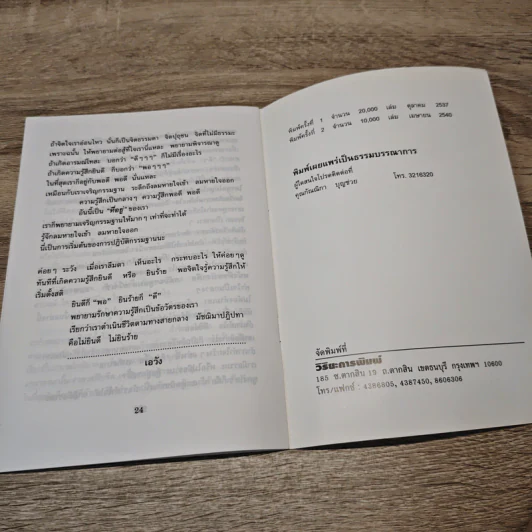 ถ้าจิตใจเราอ่อนไหว นั่นก็เป็นจิตธรรมดา จิตปุถุชน จิตที่ไม่มีธรรมะ
เพราะฉะนั้น ให้พยายามต่อสู้ที่ใจเรานี่แหละ พยายามพิจารณาดู
ถ้าเกิดอารมณ์โทสะ บอกว่า "ดีๆๆๆ" ก็ไม่มีเรื่องอะไร
ถ้าเกิดความรู้สึกยินดี ก็บอกว่า "พอๆๆๆ"
ในที่สุดเราก็อยู่กับพอดี พอดี นั่นแหละ
เหมือนกับเราเจริญกรรมฐาน ระลึกถึงลมหายใจเข้า ลมหายใจออก
ความรู้สึกเป็นกลางๆ ความรู้สึก พอดี
อันนี้เป็น "ที่อยู่" ของเรา
เราก็พยายามเจริญกรรมฐานให้มากๆ เท่าที่จะทำได้
รู้จักลมหายใจเข้า ลมหายใจออก
นี่เป็นการเริ่มต้นของการปฏิบัติกรรมฐานนะ
ค่อยๆ ระวัง เมื่อเราลืมตา เห็นอะไร กระทบอะไร ให้ค่อยๆ ดู
ทันทีที่เกิดความรู้สึกยินดี หรือ ยินร้าย พอจิตใจรู้ความรู้สึกให้
เริ่มตั้งสติ
ยินดีก็ "พอ" ยินร้ายก็ "ดี"
พยายามรักษาความรู้สึกเป็นข้อวัตรของเรา
เรียกว่าเราดำเนินชีวิตตามทางสายกลาง มัชฌิมาปฏิปทา
คือไม่ยินดี ไม่ยินร้าย
เอวัง
24
พิมพ์ครั้งที่ 1 จำนวน 20,000 เล่ม ตุลาคม 2537
พิมพ์ครั้งที่ 2 จำนวน 10,000 เล่ม เมษายน 2540
พิมพ์เผยแพร่เป็นธรรมบรรณาการ
ผู้ใดสนใจโปรดติดต่อที่
คุณกัณฒิกา บุญช่วย โทร. 3216320
จัดพิมพ์ที่
วิริยะการพิมพ์
185 ซ.ตากสิน 19 ถ.ตากสิน เขตธนบุรี กรุงเทพฯ 10600
โทร/แฟกซ์ : 4386805, 4387450, 8606306